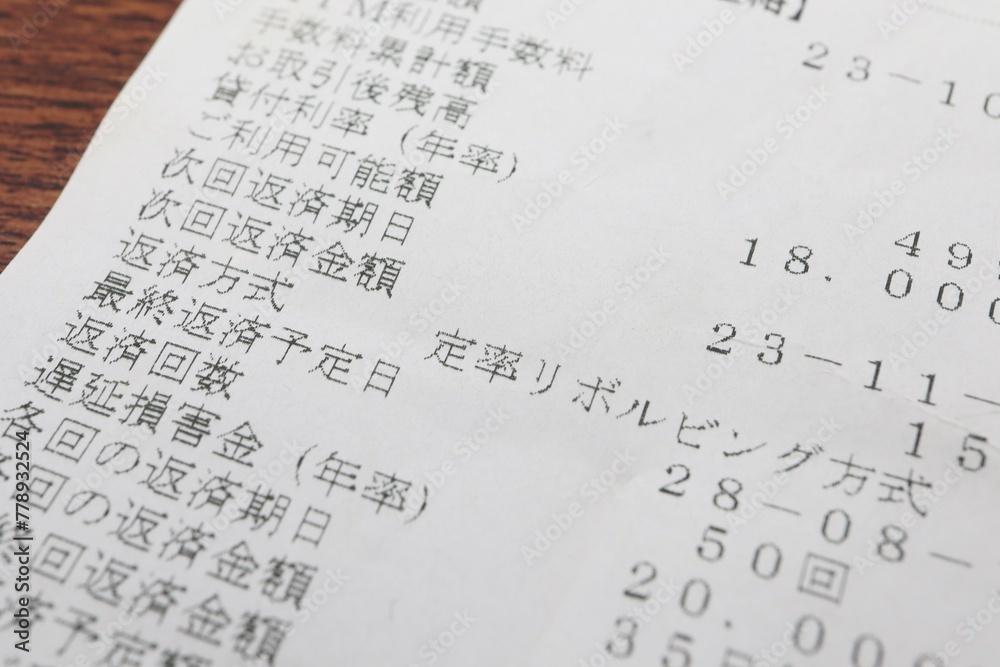 利用手数料
手数料累計額 23-10
お取引後残高
貸付利率（年率）
ご利用可能額 49
次回返済期日 18.000
次回返済金額
返済方式 23-11-
最終返済予定日 定率リボルビング方式 15
返済回数 28-08-
遅延損害金（年率） 50回
各回の返済期日 20.00
回の返済金額 35
回返済金額
予定
Adobe Stock | #778932524